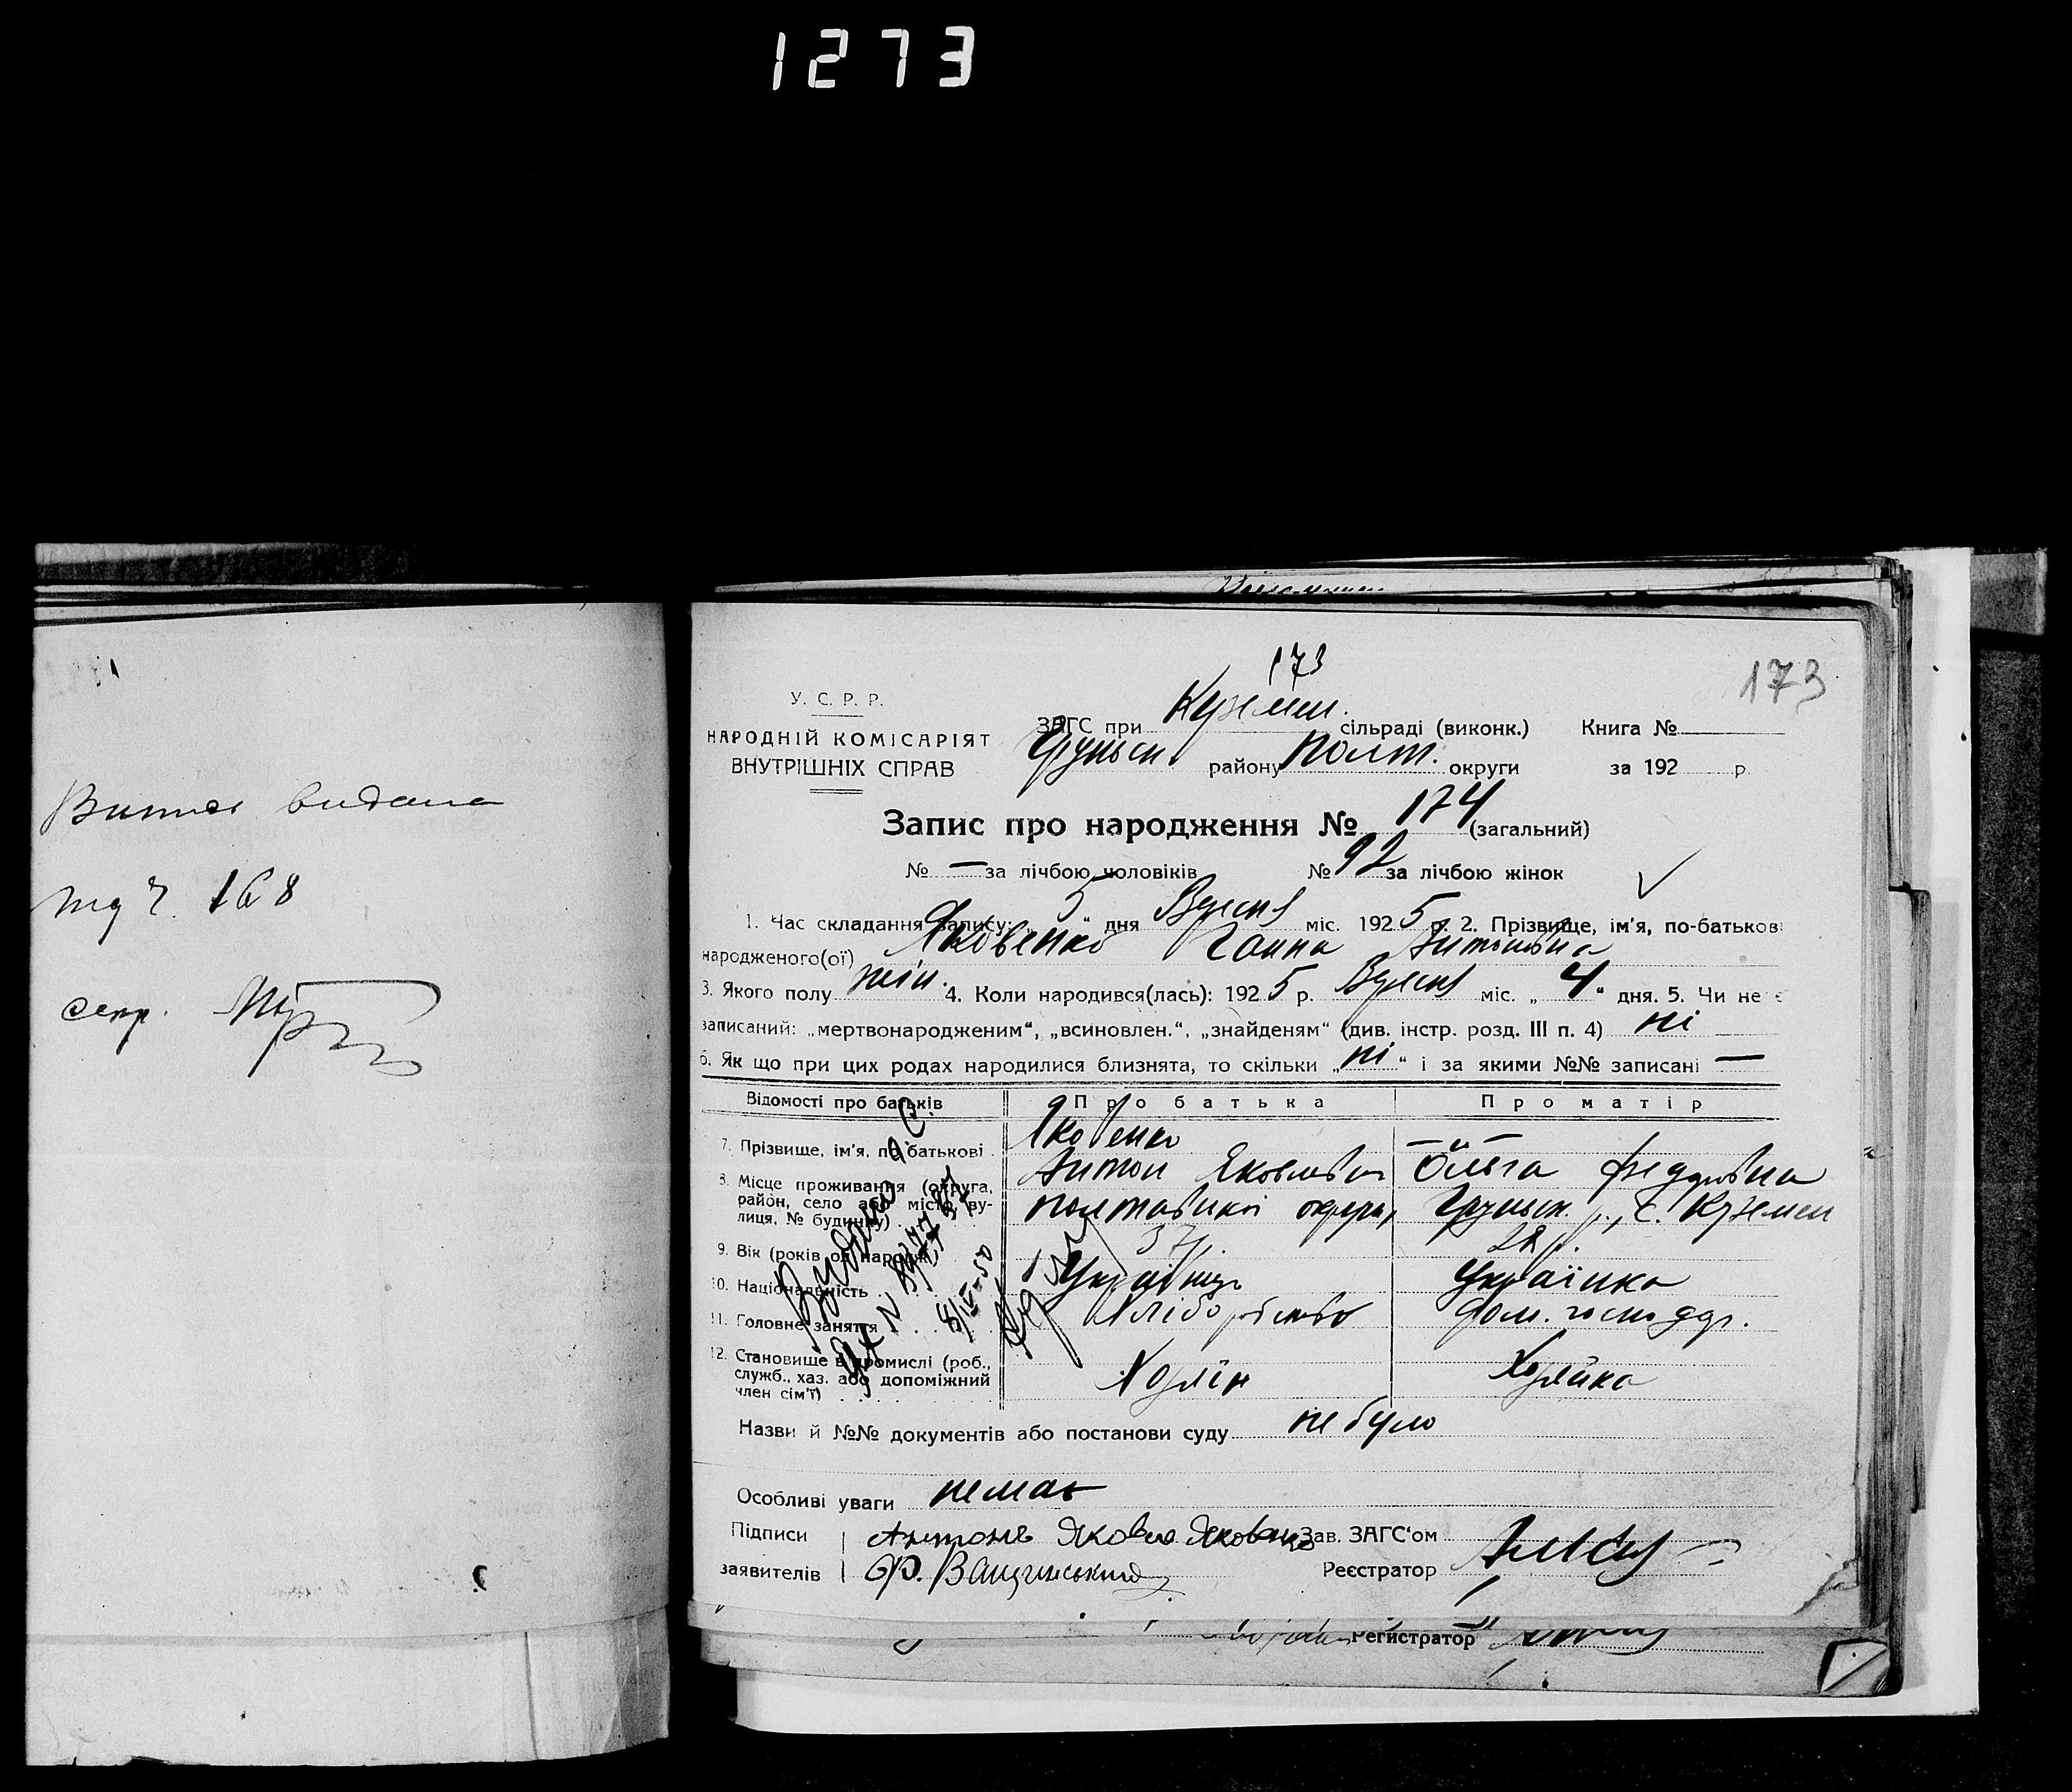 1273
Витяг видана
під ч. 168
секр.
173
173
У. С. Р. Р.
НАРОДНІЙ КОМІСАРІЯТ
ВНУТРІШНІХ СПРАВ
ЗАГС при Куземен. сільраді (виконк.) Книга №
Груньськ. району Полт. округи за 192 р.
Запис про народження № 174 (загальний)
№ — за лічбою чоловіків № 92 за лічбою жінок
1. Час складання запису: „5“ дня Вересня міс. 1925 р. 2. Прізвище, ім'я, по-батькові
народженого(ої) Яковенко Ганна Антонівна
3. Якого полу жін. 4. Коли народився(лась): 1925 р. Вересня міс. „4“ дня. 5. Чи не є
записаний: „мертвонародженим“, „всиновлен.“, „знайденям“ (див. інстр. розд. III п. 4) ні
6. Як що при цих родах народилися близнята, то скільки „ні“ і за якими №№ записані —
Відомості про батьків Про батька Про матір
7. Прізвище, ім'я, по батькові Яковенко — „ —
Антон Яковлевич Ольга Федорівна
8. Місце проживання (округа, район, село або місто, вулиця, № будинку) Полтавської округи, Груньськ. р., с. Куземен
9. Вік (років од народж.) 37 р. 28 р.
10. Національність Українець Українка
11. Головне заняття Хліборобство Дом. господар.
12. Становище в промислі (роб., служб., хаз. або допоміжний член сім'ї) Хозяїн Хозяйка
Видано
8/IV-50
Назви й №№ документів або постанови суду не було
Особливі уваги немає
Підписи Антонъ Яковенко Зав. ЗАГС'ом
заявителів Ф. Ващинський Реєстратор
Регистратор